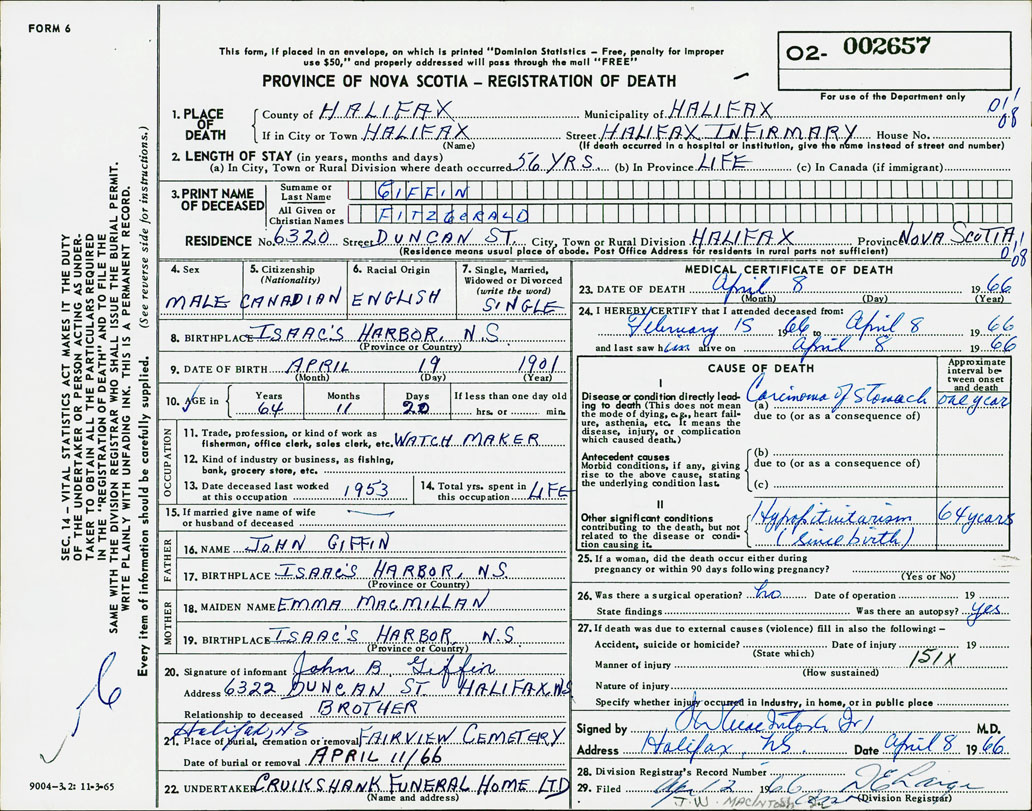 FORM 6
This form, if placed in an envelope, on which is printed "Dominion Statistics – Free, penalty for improper
use $50," and properly addressed will pass through the mail "FREE"
O2- 002657
PROVINCE OF NOVA SCOTIA – REGISTRATION OF DEATH
For use of the Department only
1. PLACE OF DEATH
County of HALIFAX Municipality of HALIFAX 01/08
If in City or Town HALIFAX Street HALIFAX INFIRMARY House No.
(Name) (If death occurred in a hospital or institution, give the name instead of street and number)
2. LENGTH OF STAY (in years, months and days)
(a) In City, Town or Rural Division where death occurred 56 YRS. (b) In Province LIFE (c) In Canada (if immigrant)
3. PRINT NAME OF DECEASED
Surname or Last Name GIFFIN
All Given or Christian Names FITZGERALD
RESIDENCE No. 6320 Street DUNCAN ST. City, Town or Rural Division HALIFAX Province NOVA SCOTIA 01/08
(Residence means usual place of abode. Post Office Address for residents in rural parts not sufficient)
4. Sex MALE
5. Citizenship (Nationality) CANADIAN
6. Racial Origin ENGLISH
7. Single, Married, Widowed or Divorced (write the word) SINGLE
8. BIRTHPLACE ISAAC'S HARBOR, N.S.
(Province or Country)
9. DATE OF BIRTH APRIL 19 1901
(Month) (Day) (Year)
10. AGE in Years 64 Months 11 Days 20 If less than one day old hrs. or min.
OCCUPATION
11. Trade, profession, or kind of work as
fisherman, office clerk, sales clerk, etc. WATCH MAKER
12. Kind of industry or business, as fishing,
bank, grocery store, etc.
13. Date deceased last worked at this occupation 1953
14. Total yrs. spent in this occupation LIFE
15. If married give name of wife
or husband of deceased
FATHER
16. NAME JOHN GIFFIN
17. BIRTHPLACE ISAAC'S HARBOR, N.S.
(Province or Country)
MOTHER
18. MAIDEN NAME EMMA MACMILLAN
19. BIRTHPLACE ISAAC'S HARBOR, N.S
(Province or Country)
20. Signature of informant John B. Giffin
Address 6322 DUNCAN ST HALIFAX, N.S.
Relationship to deceased BROTHER
Halifax, NS
21. Place of burial, cremation or removal FAIRVIEW CEMETERY
Date of burial or removal APRIL 11/66
22. UNDERTAKER CRUIKSHANK FUNERAL HOME LTD
(Name and address)
MEDICAL CERTIFICATE OF DEATH
23. DATE OF DEATH April 8 1966
(Month) (Day) (Year)
24. I HEREBY CERTIFY that I attended deceased from:
February 15 1966 to April 8 1966
and last saw him alive on April 8 1966
CAUSE OF DEATH
Approximate interval between onset and death
I
Disease or condition directly leading to death (This does not mean the mode of dying, e.g., heart failure, asthenia, etc. It means the disease, injury, or complication which caused death.)
(a) Carcinoma of Stomach one year
due to (or as a consequence of)
Antecedent causes
Morbid conditions, if any, giving rise to the above cause, stating the underlying condition last.
(b)
due to (or as a consequence of)
(c)
II
Other significant conditions contributing to the death, but not related to the disease or condition causing it.
Hypopituitarism 64 years
(since birth)
25. If a woman, did the death occur either during
pregnancy or within 90 days following pregnancy?
(Yes or No)
26. Was there a surgical operation? no Date of operation 19
State findings Was there an autopsy? yes
27. If death was due to external causes (violence) fill in also the following: –
Accident, suicide or homicide? Date of injury 19
(State which)
Manner of injury 151X
(How sustained)
Nature of injury
Specify whether injury occurred in industry, in home, or in public place
Signed by JW MacIntosh Jr M.D.
Address Halifax, NS. Date April 8 1966
28. Division Registrar's Record Number
29. Filed Apr 12 1966
(Division Registrar)
J.W. MACINTOSH
SEC. 14 – VITAL STATISTICS ACT MAKES IT THE DUTY
OF THE UNDERTAKER OR PERSON ACTING AS UNDER-
TAKER TO OBTAIN ALL THE PARTICULARS REQUIRED
IN THE "REGISTRATION OF DEATH" AND TO FILE THE
SAME WITH THE DIVISION REGISTRAR WHO SHALL ISSUE THE BURIAL PERMIT.
WRITE PLAINLY WITH UNFADING INK. THIS IS A PERMANENT RECORD.
Every item of information should be carefully supplied. (See reverse side for instructions.)
9004–3.2: 11-3-65